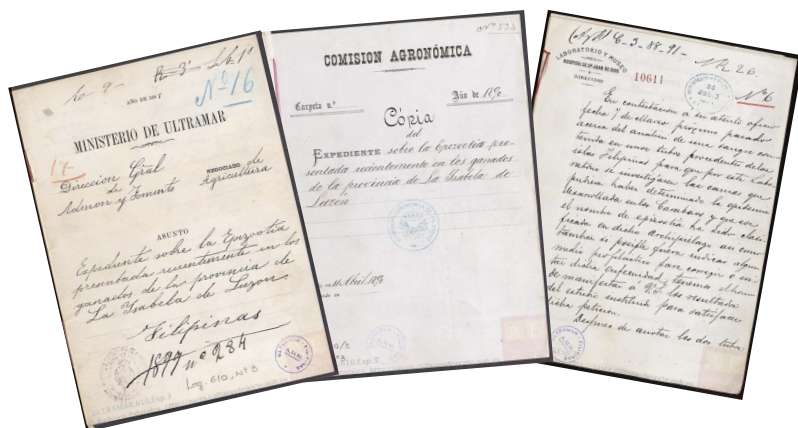 Nº 16
AÑO DE 1897
MINISTERIO DE ULTRAMAR
17
Direccion Gral
de
Admon y Fomento
NEGOCIADO de
Agricultura
ASUNTO
Expediente sobre la Epizootia
presentada recientemente en los
ganados de la provincia de
La Ysabela de Luzon
Filipinas
Leg. 610, Nº 3
ULTRAMAR,610,Exp.3
COMISION AGRONÓMICA
Carpeta n.º
Año de 1890
Cópia
del
EXPEDIENTE sobre la Epizootia pre-
sentada recientemente en los ganados
de la provincia de La Ysabela de
Luzón
Abril 1890
LABORATORIO Y MUSEO
HOSPITAL DE Sn JUAN DE DIOS
DIRECCION
10611
Nº 6
En contestación a su atento oficio
fecha 7 de Marzo próximo pasado
acerca del analisis de una sangre con-
tenida en unos tubos procedentes de las
islas Filipinas para que por este Labo-
ratorio se investigasen las causas que
pudiera haber determinado la epidemia
desarrollada en los Carabaos y que con
el nombre de epizootia ha sido clasi-
ficada en dicho Archipielago asi como
tambien si posible fuera indicar algun
medio profiláctico para corregir o evi-
tar dicha enfermedad, tenemos el honor
de manifestar á V.S. los resultados
del estudio instituido para satisfacer
dicha peticion.
Despues de anotar los dos tubos